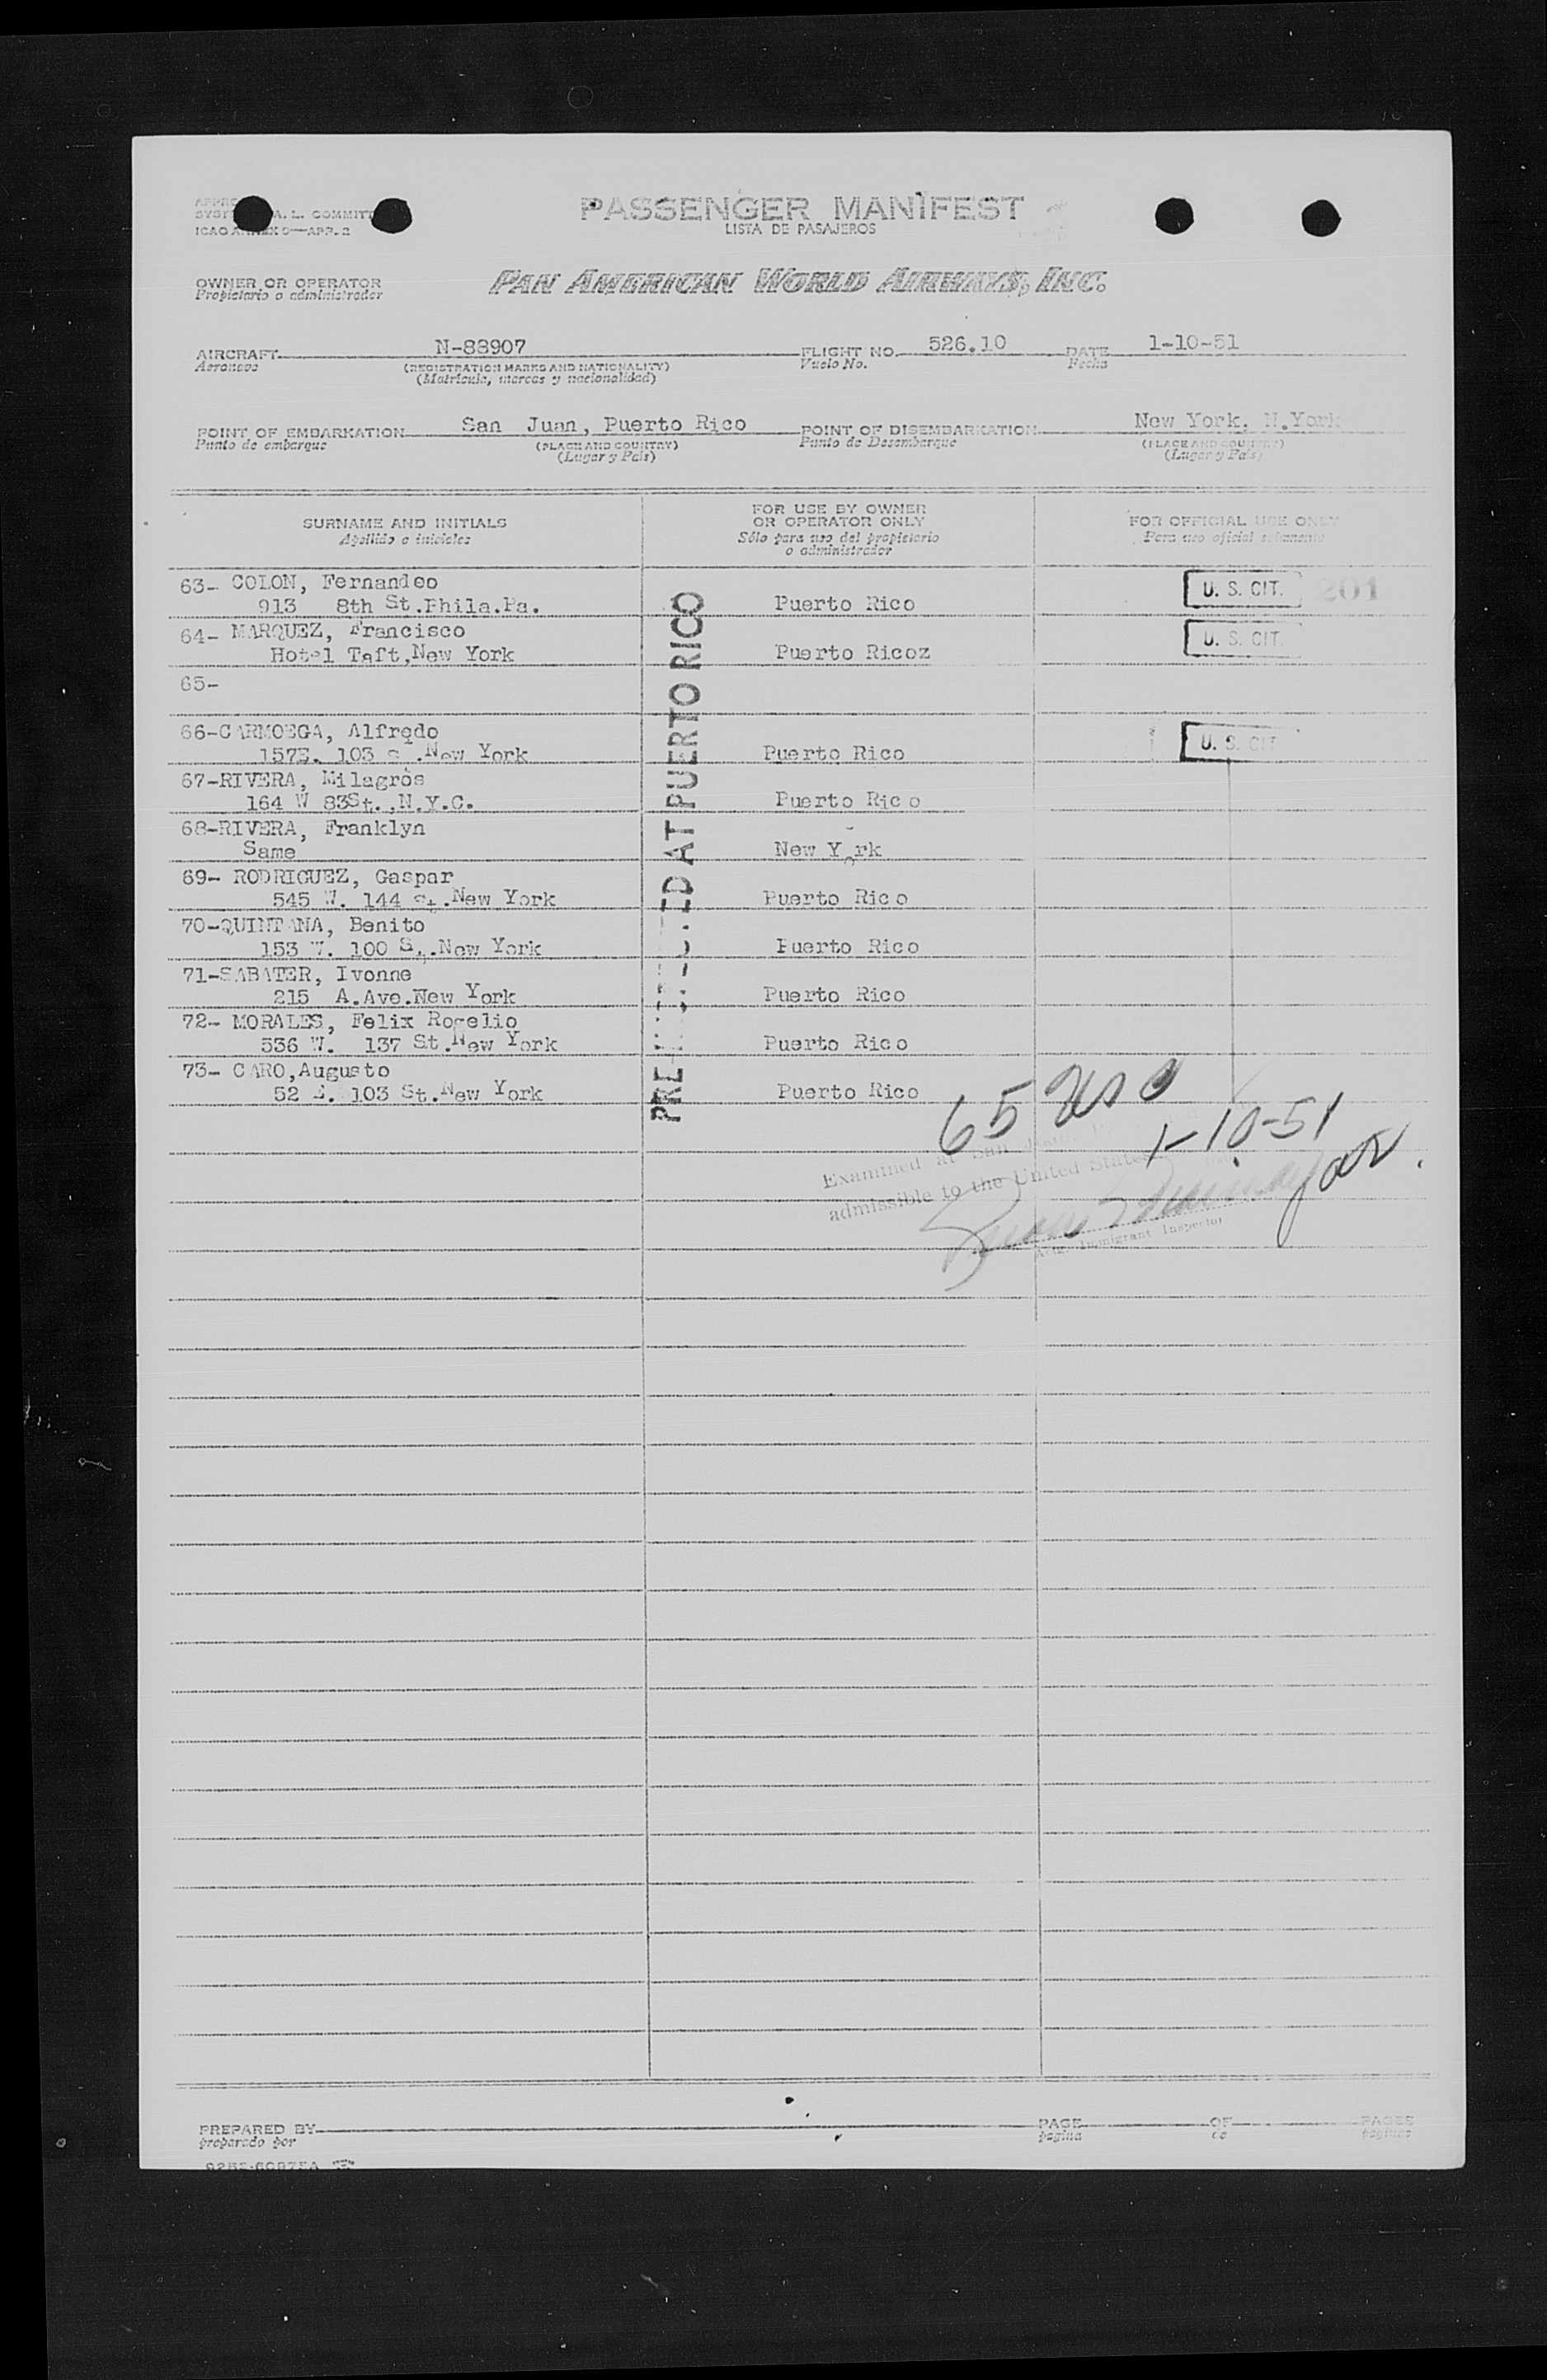 PASSENGER MANIFEST
LISTA DE PASAJEROS
A. L. COMMITT
ICAO ANNEX 9—APP. 2
OWNER OR OPERATOR
Propietario o administrador
PAN AMERICAN WORLD AIRWAYS, INC.
AIRCRAFT N-88907 FLIGHT NO. 526.10 DATE 1-10-51
Aeronave (REGISTRATION MARKS AND NATIONALITY) Vuelo No. Fecha
(Matricula, marcas y nacionalidad)
POINT OF EMBARKATION San Juan, Puerto Rico POINT OF DISEMBARKATION New York, N.York
Punto de embarque (PLACE AND COUNTRY) Punto de Desembarque (PLACE AND COUNTRY)
(Lugar y País) (Lugar y País)
SURNAME AND INITIALS
Apellido e iniciales
FOR USE BY OWNER
OR OPERATOR ONLY
Sólo para uso del propietario
o administrador
FOR OFFICIAL USE ONLY
Para uso oficial solamente
63- COLON, Fernandeo U. S. CIT. 201
913 8th St.Phila.Pa. Puerto Rico
64- MARQUEZ, Francisco U. S. CIT.
Hotel Taft,New York Puerto Ricoz
65-
66-CARMOEGA, Alfredo U. S. CIT
157E. 103 St.New York Puerto Rico
67-RIVERA, Milagros
164 W 83St.,N.Y.C. Puerto Rico
68-RIVERA, Franklyn
Same New York
69- RODRIGUEZ, Gaspar
545 W. 144 St.New York Puerto Rico
70-QUINTANA, Benito
153 W. 100 St.New York Puerto Rico
71-SABATER, Ivonne
215 A.Ave.New York Puerto Rico
72- MORALES, Felix Rogelio
536 W. 137 St.New York Puerto Rico
73- CARO,Augusto
52 E. 103 St.New York Puerto Rico
AT PUERTO RICO
65 usc
1-10-51
Examined at San
admissible to the United States
Immigrant Inspector
PREPARED BY PAGE OF PAGES
preparado por pagina de paginas